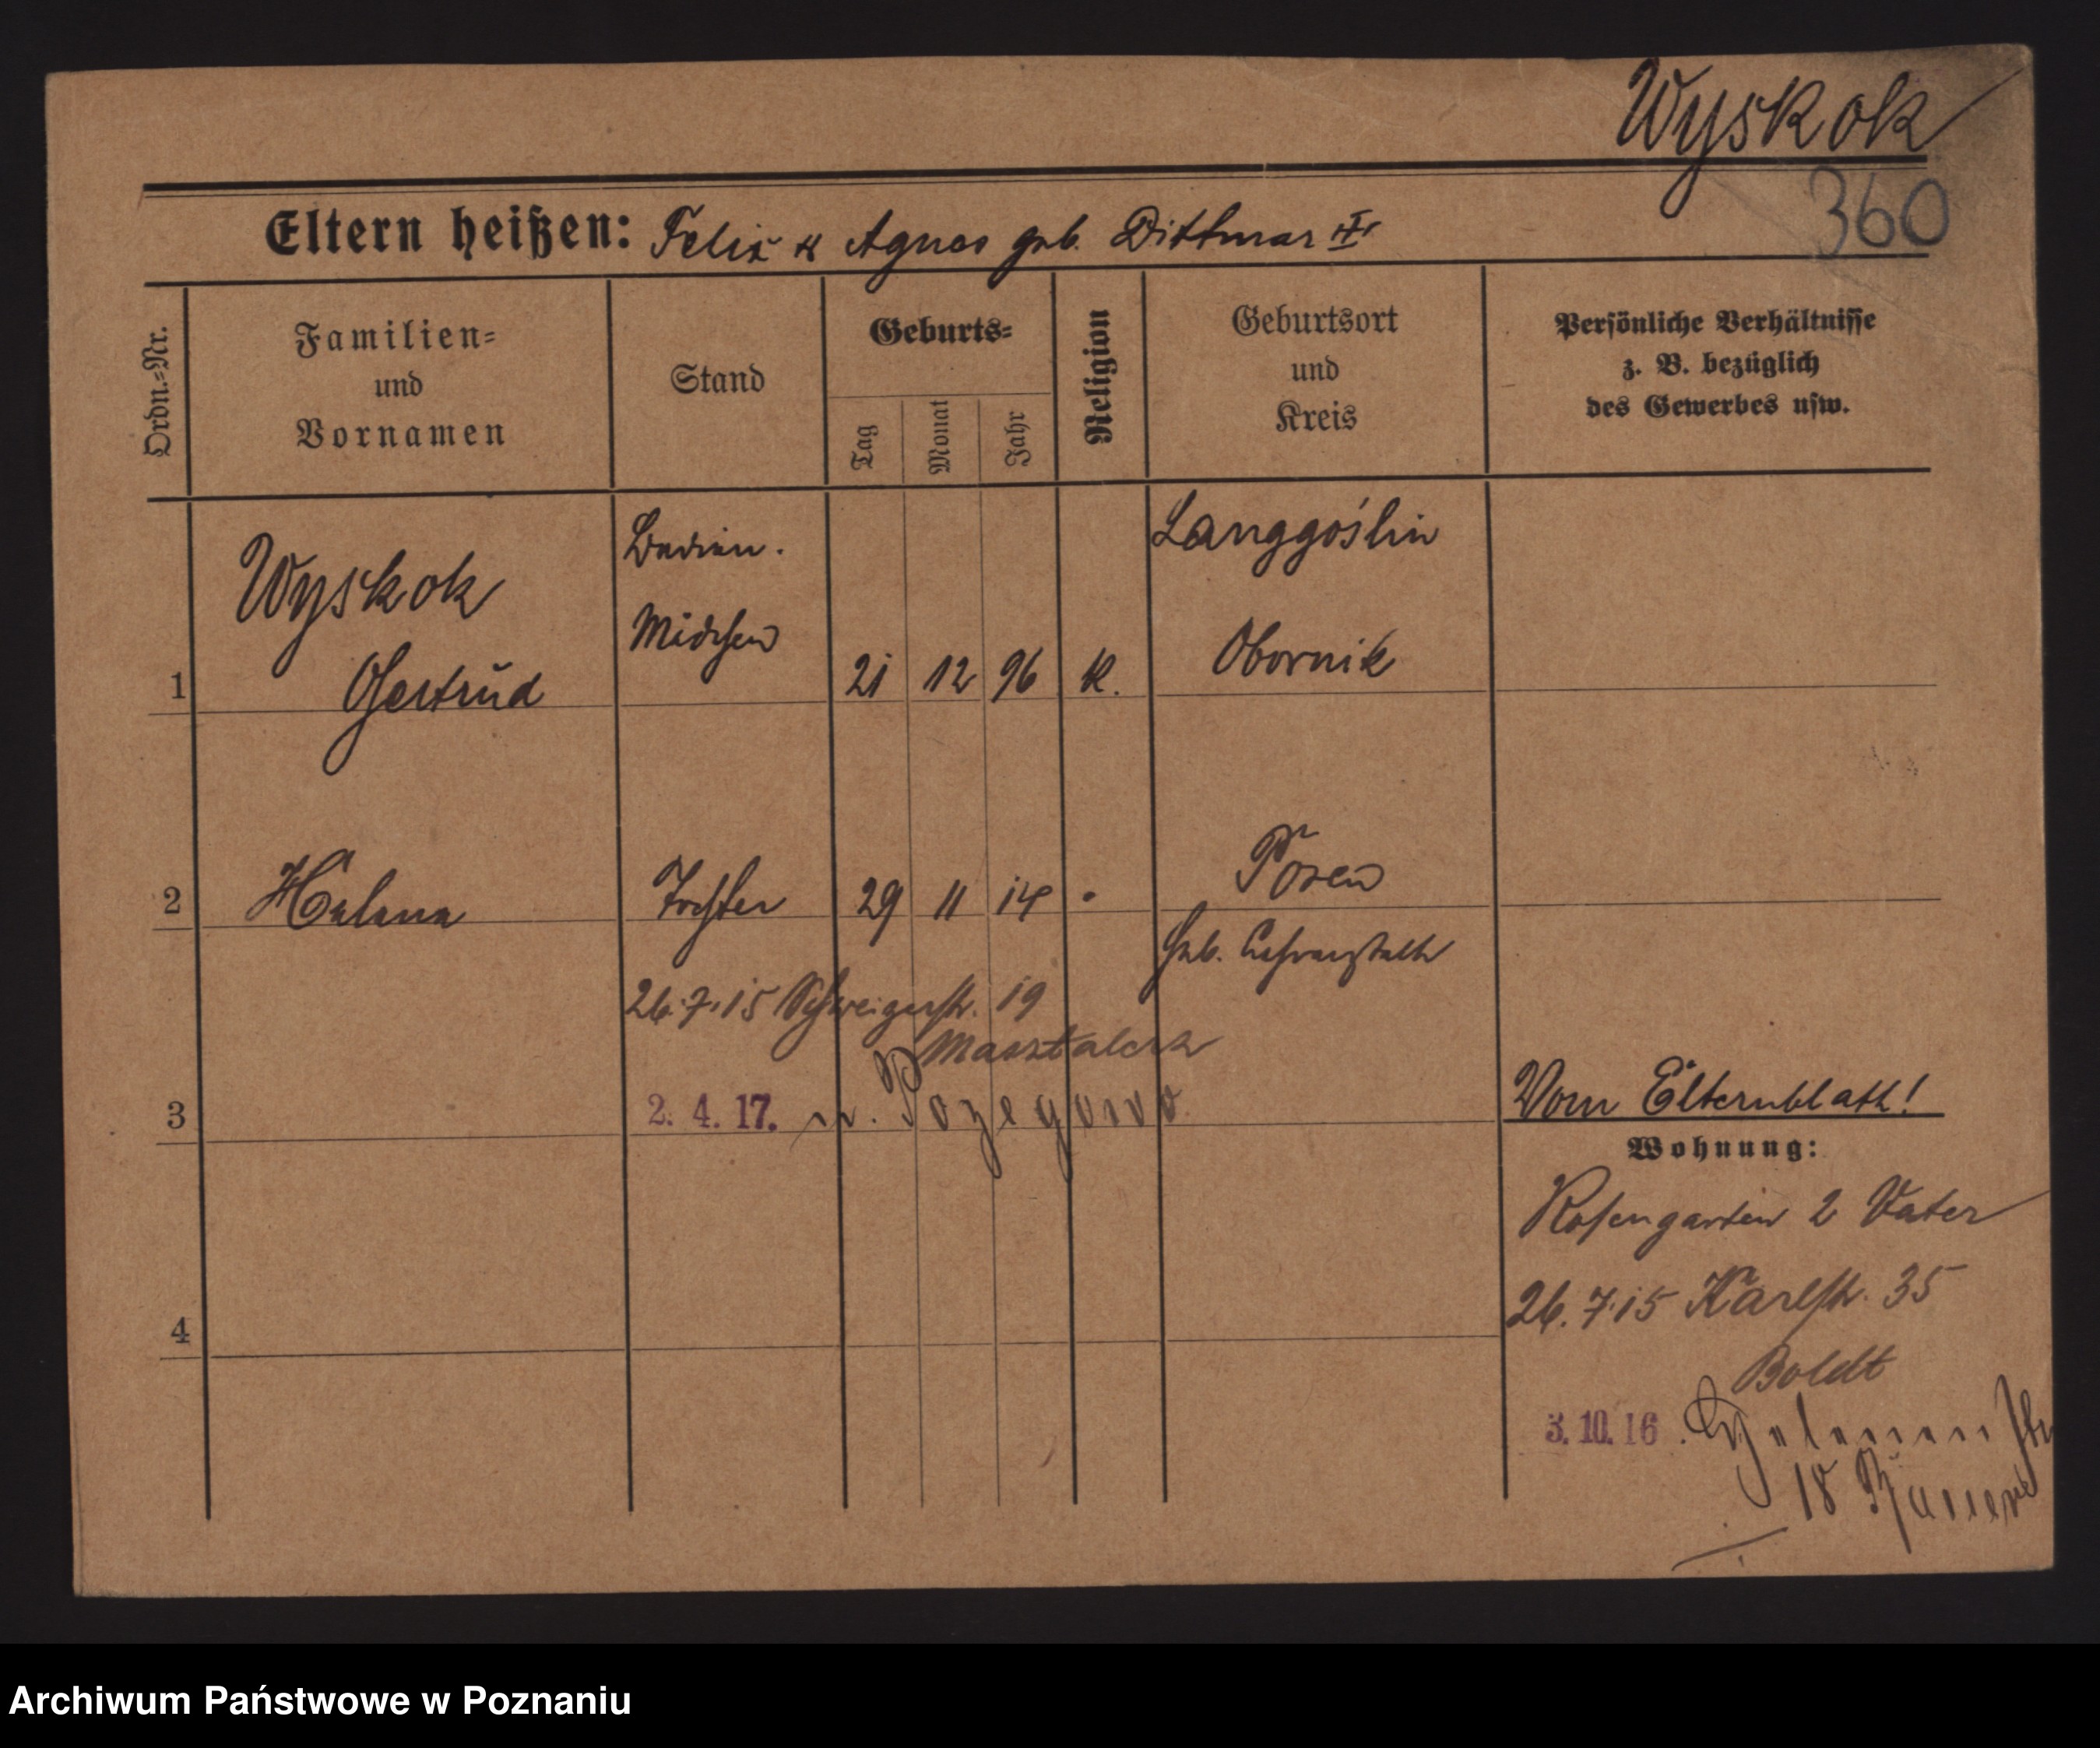 Wyskok
360
Eltern heißen: Felix u Agnes geb. Dittmar II
Ordn.-Nr.
Familien-
und
Vornamen
Stand
Geburts-
Tag
Monat
Jahr
Religion
Geburtsort
und
Kreis
Persönliche Verhältnisse
z. B. bezüglich
des Gewerbes usw.
1
Wyskok
Gertrud
Bedien.
Mädchen
21 12 96 k.
Langgoślin
Obornik
2 Helena Tochter 29 11 14 "
Posen
Heb. Lehranstalt
26.7.15 Schweigerstr. 19
Masztalerz
3
2. 4. 17. n. Pozegowo
Vom Elternblatt!
Wohnung:
Rosengarten 2 Vater
26.7.15 Karlstr. 35
Boldt
3. 10. 16
18
4
Archiwum Państwowe w Poznaniu